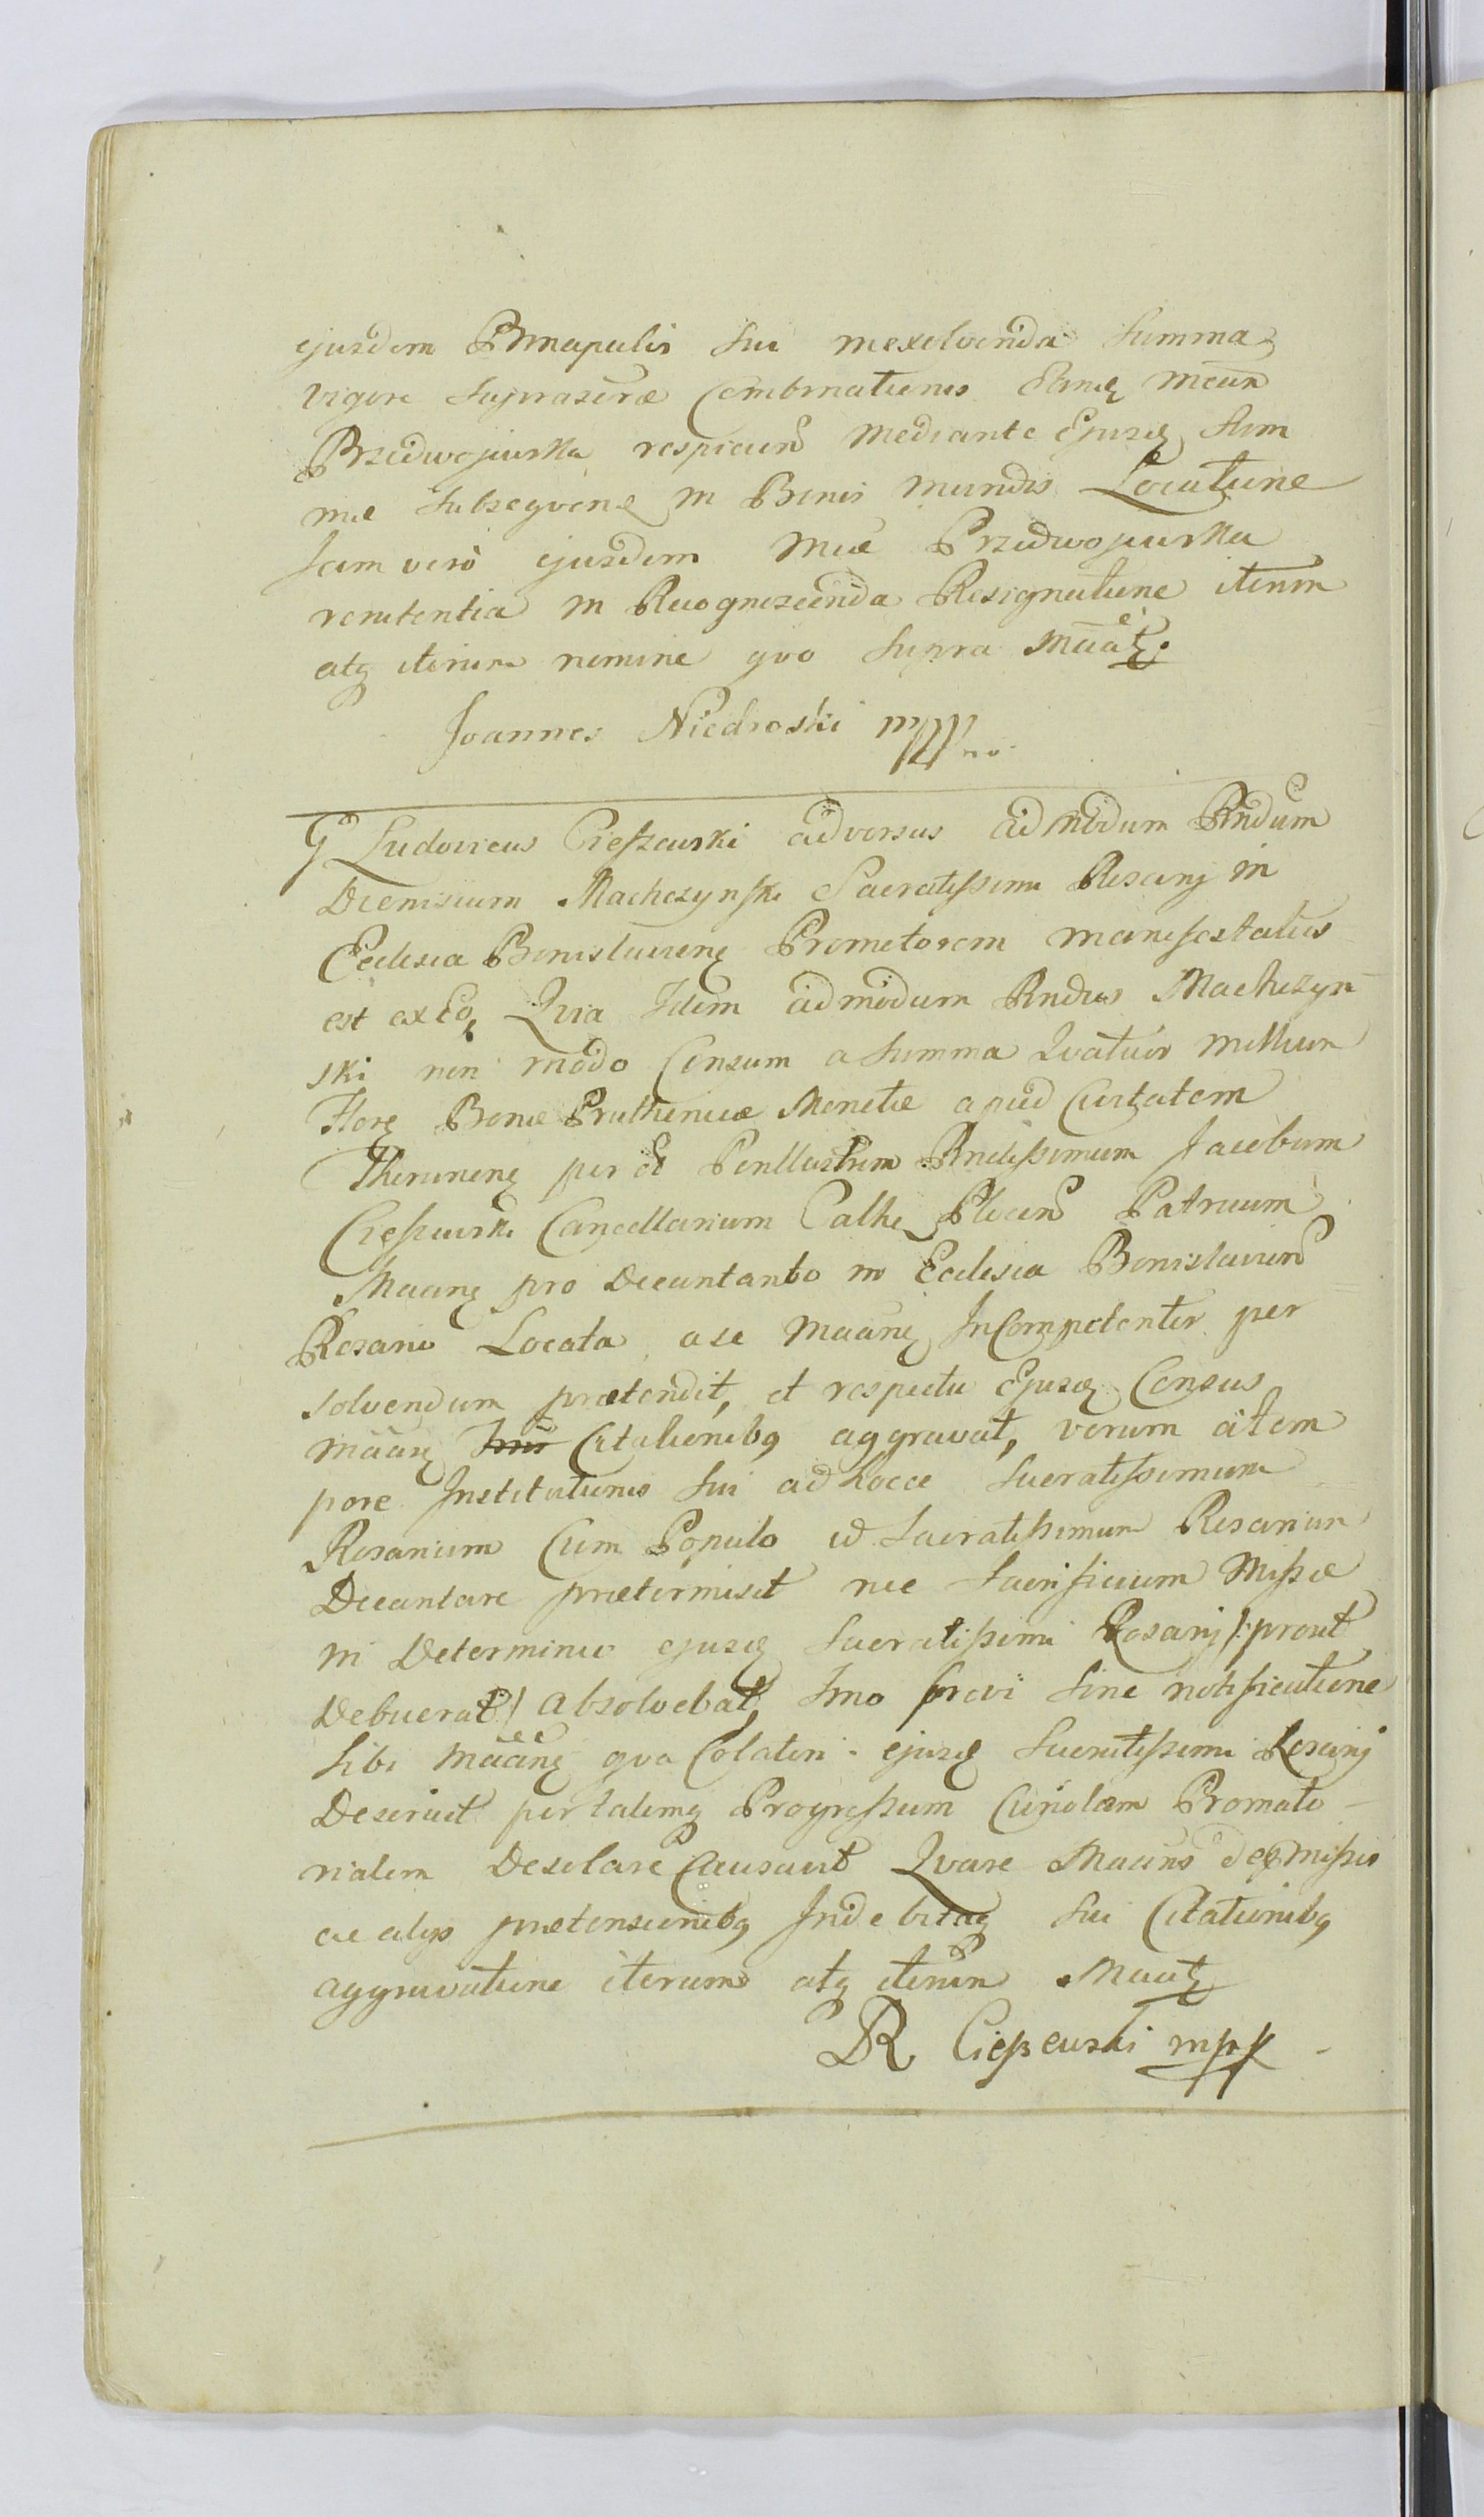 ejusdem Principalis sui inexolvenda Summa
vigore suprascræ Combinationis Famę Mcam
Przedwojewska respicien mediante Ejusdę Sum
mæ subseqvenę in Bonis mundis Locatione
Jam vero ejusdem Mcæ Przedwojewska
renitentia in Recognoscenda Resignatione iterum
atq iterum nomine qvo supra Maatȝ.
Joannes Niedroski mpp
G Ludovicus Cieszewski adversus admodum Rndum
Dionisium Machczynski Sacratissimi Rosarij in
Ecclesia Bonislavienę Promotorem manifestatus
est ex Eo, Qvia Idem admodum Rndus Machczyn
ski non modo Censum a Summa Qvatuor millium
Florę Bonæ Pruthenicæ Monetæ apud Civitatem
Thorunienę per ol Perillustrem Rndissimum Jacobum
Cieszewski Cancellarium Cathę Plocen Patruum
Maanę pro Decantanto in Ecclesia Bonislavien
Rosario Locata a se Maanę InCompetenter per
solvendum prætendit, et respectu Ejusdę Census
Maanę Citationibq aggravat, verum a tem
pore Institutionis sui ad hocce Sacratissimum
Rosarium Cum Populo id Sacratissimum Rosarium
Decantare prætermisit nec Sacrificium Missæ
in Determinio ejusdę Sacratissimi Rosarij /: prout
Debuerat :/ absolvebat, Imo prævi sine notificatione
sibi Maanę qva Colatori ejusdę Sacratissimi Rosarij
Deseruit per talemq Progressum Curiolam Promoto
rialem Desolare Causavit Qvare Maans de præmissis
ac alys prætensionibq Indebitaq sui Citationibq
aggravatione iterum atq iterum Maatȝ
LR Cieszewski mpp